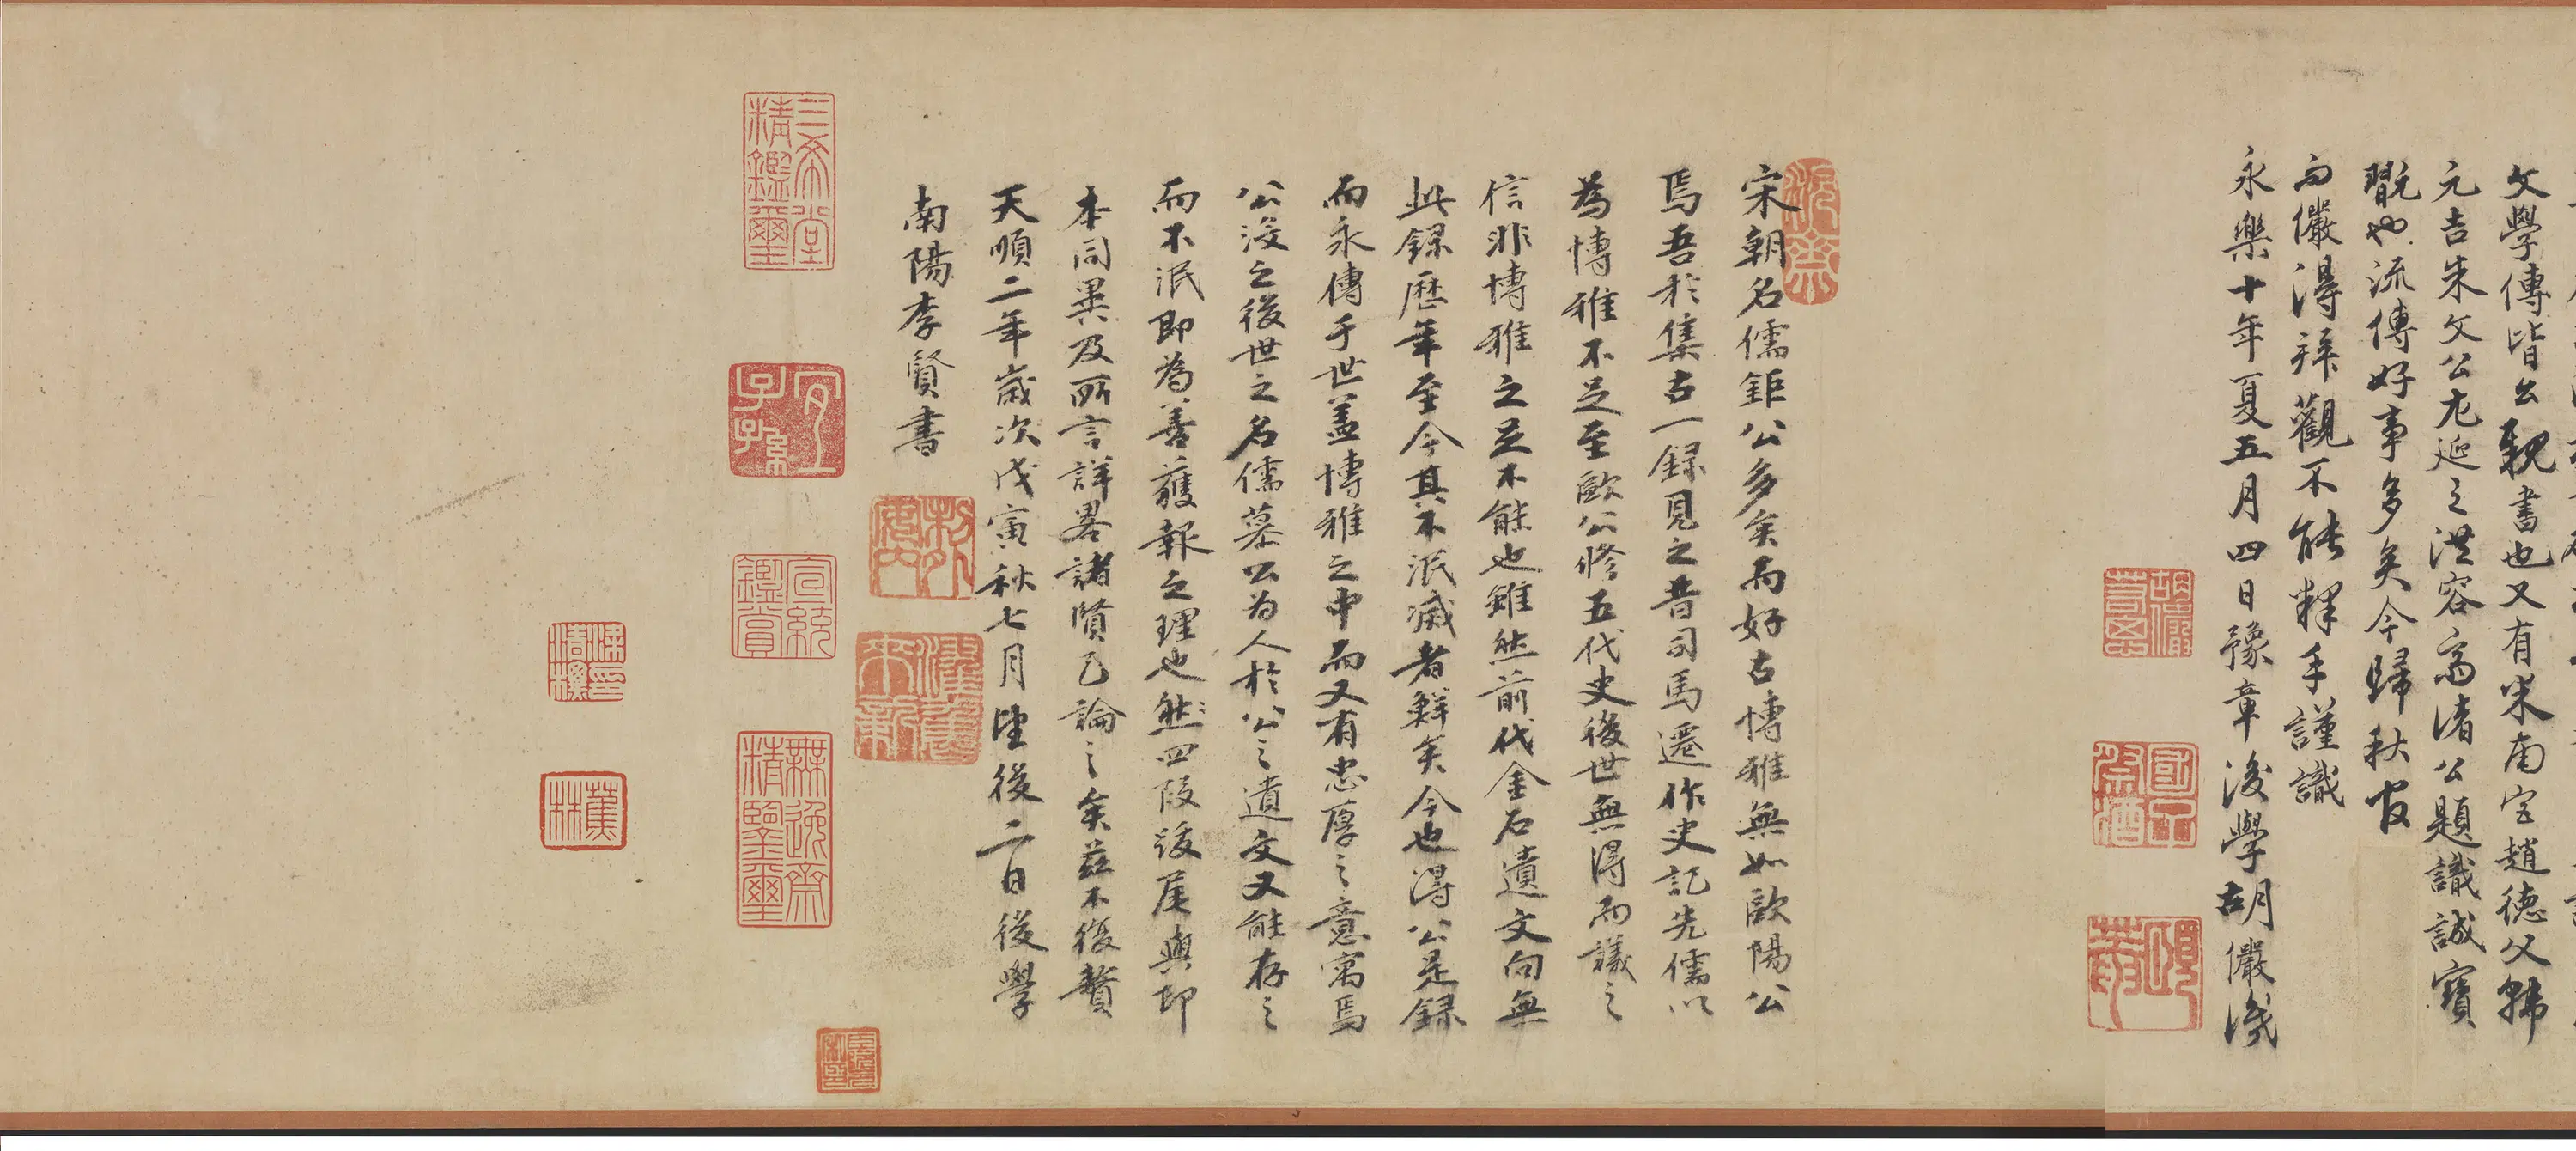 文學傳皆公親書也又有米南宮趙德父韓
元吉朱文公尤延之洪容齋諸公題識誠寶
翫也流傳好事多矣今歸秋官
而儼得拜觀不能釋手謹識
永樂十年夏五月四日豫章後學胡儼識
胡儼
宋朝名儒鉅公多矣而好古博雅無如歐陽公
焉吾於集古一錄見之昔司馬遷作史記先儒以
為博雅不足至歐公修五代史後世無得而議之
信非博雅之足不能也雖然前代金石遺文向無
此錄歷年至今其不泯滅者鮮矣今也得公是錄
而永傳于世蓋博雅之中而又有忠厚之意寓焉
公沒之後世之名儒慕公為人於公之遺文又能存之
而不泯即為善獲報之理也然四段跋尾與印
本同異及所言詳畧諸賢已論之矣茲不復贅
天順二年歲次戊寅秋七月望後二日後學
南陽李賢書
三希堂精鑑璽
宜子孫
宣統鑑賞
無逸齋精鑒璽
蕉林